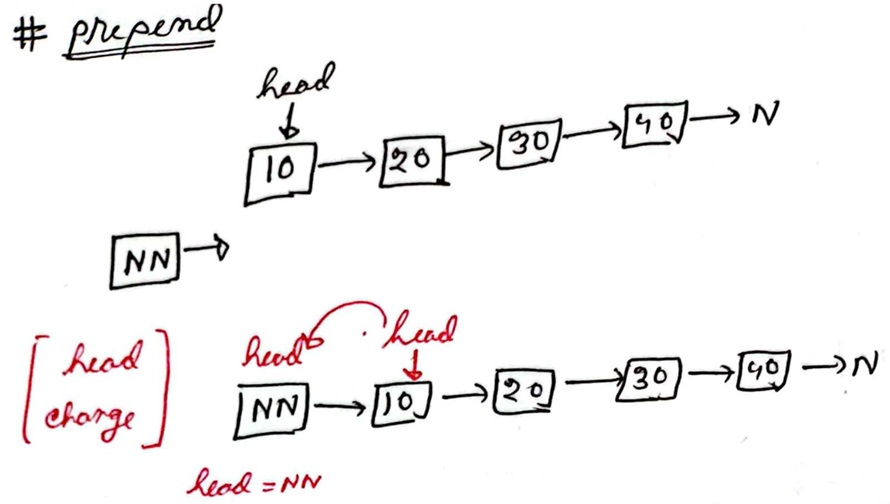 # prepend
head
10 → 20 → 30 → 40 → N
NN →
[head change]
head head
NN → 10 → 20 → 30 → 40 → N
head = NN